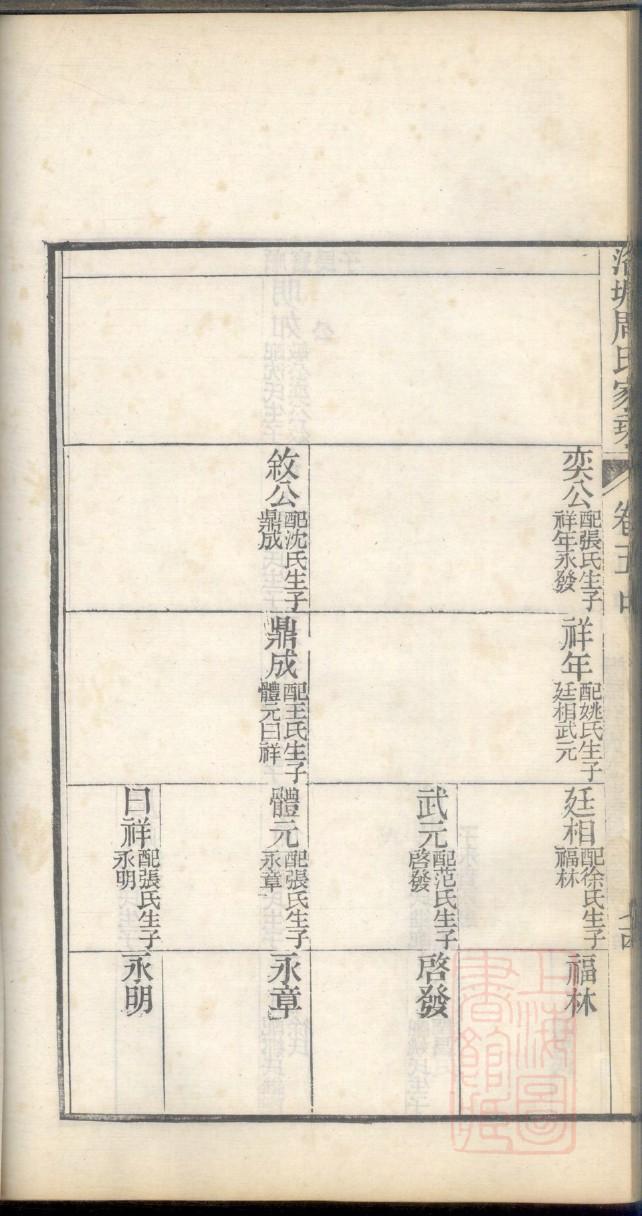 洛塘周氏家乘
卷五中
奕公
配張氏生子
祥年永發
敘公
配沈氏生子
鼎成
祥年
配姚氏生子
廷相武元
鼎成
配王氏生子
體元曰祥
廷相
配徐氏生子
福林
武元
配范氏生子
啓發
體元
配張氏生子
永章
曰祥
配張氏生子
永明
福林
啓發
永章
永明
上海圖
書館藏